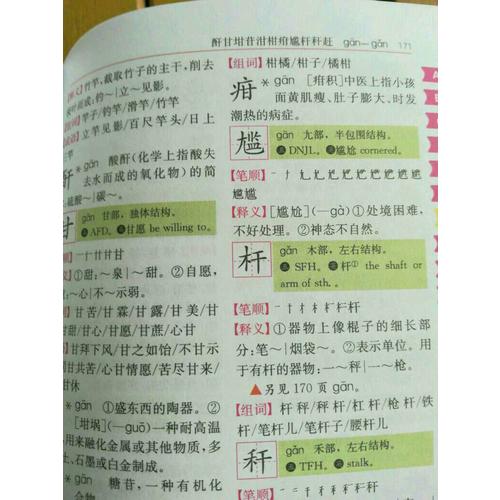 酐甘坩苷泔柑疳尴杆秆赶 gān—gǎn 171
竹竿，截取竹子的主干，削去
枝叶而成：钓～｜立～见影。
竿子/钓竿/滑竿/竹竿
立竿见影/百尺竿头/日上
三竿
酐 *gān 酸酐(化学上指酸失
去水而成的氧化物)的简
硫酸～｜碳～。
甘 gān 甘部，独体结构。
AFD。 甘愿 be willing to.
一十廿甘甘
①甜：～泉｜～甜。②自愿，
～心｜不～示弱。
甘苦/甘霖/甘露/甘美/甘
甜/甘心/甘愿/甘蔗/心甘
甘拜下风/甘之如饴/不甘示
弱/同甘共苦/心甘情愿/苦尽甘来/
甘休
*gān ①盛东西的陶器。②
[坩埚](—guō)一种耐高温
用来融化金属或其他物质，多
土、石墨或白金制成。
*gān 糖苷，一种有机化
合物
【组词】柑橘/柑子/橘柑
疳 *gān [疳积]中医上指小孩
面黄肌瘦、肚子膨大、时发
潮热的病症。
尴 gān 尢部，半包围结构。
DNJL。 尴尬 cornered.
【笔顺】
尴尴
【释义】[尴尬](—gà)①处境困难，
不好处理。②神态不自然。
杆 gǎn 木部，左右结构。
SFH。 杆① the shaft or
arm of sth.。
【笔顺】一十才木杆杆杆
【释义】①器物上像棍子的细长部
分：笔～｜烟袋～。②表示单位。用
于有杆的器物：一～秤｜一～枪。
▲另见 170 页 gān。
【组词】杆秤/秤杆/杠杆/枪杆/铁
杆/笔杆儿/笔杆子/腰杆儿
秆 gǎn 禾部，左右结构。
TFH。 stalk。